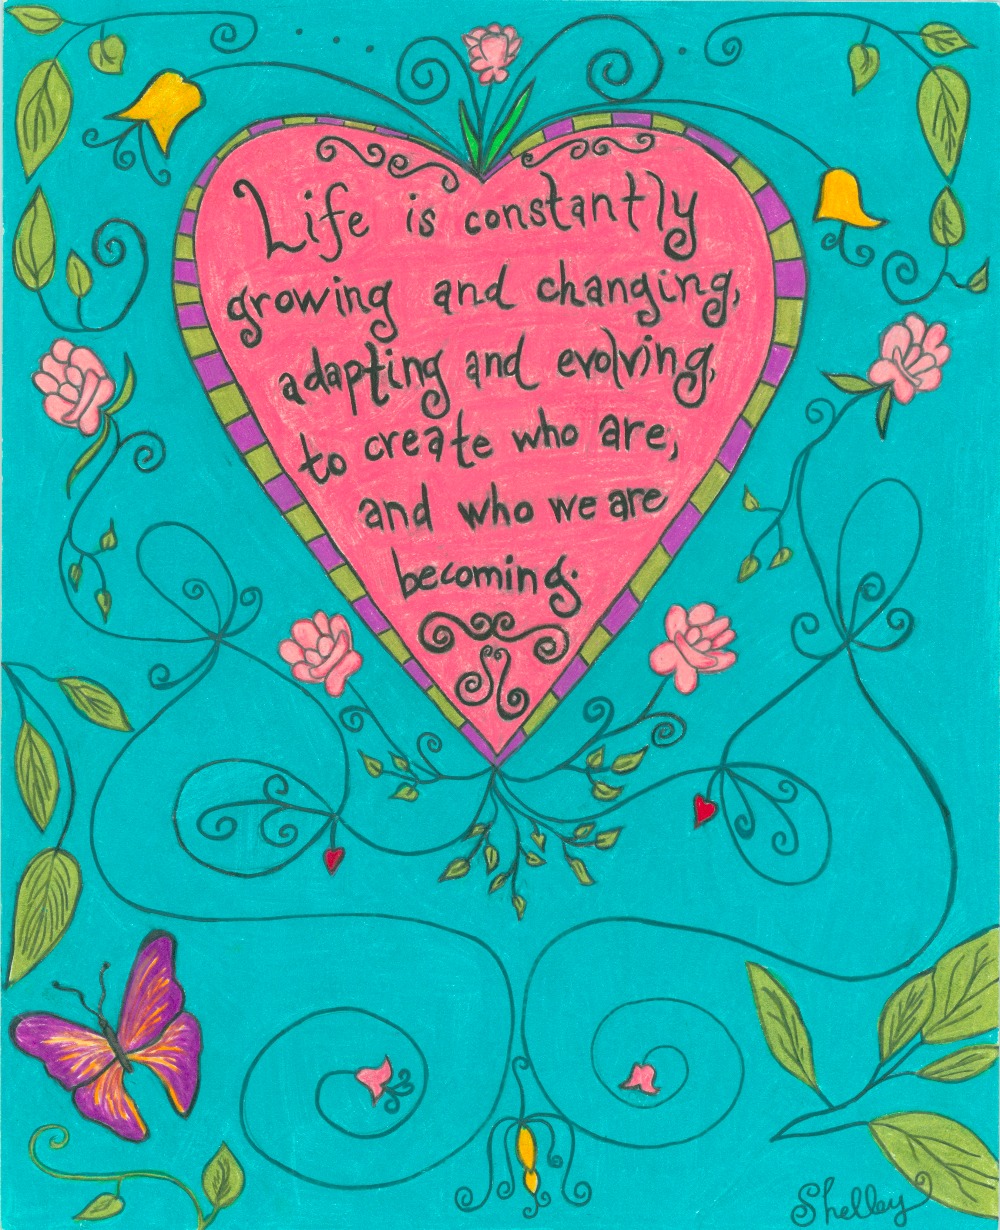 Life is constantly
growing and changing,
adapting and evolving,
to create who are,
and who we are
becoming.
Shelley